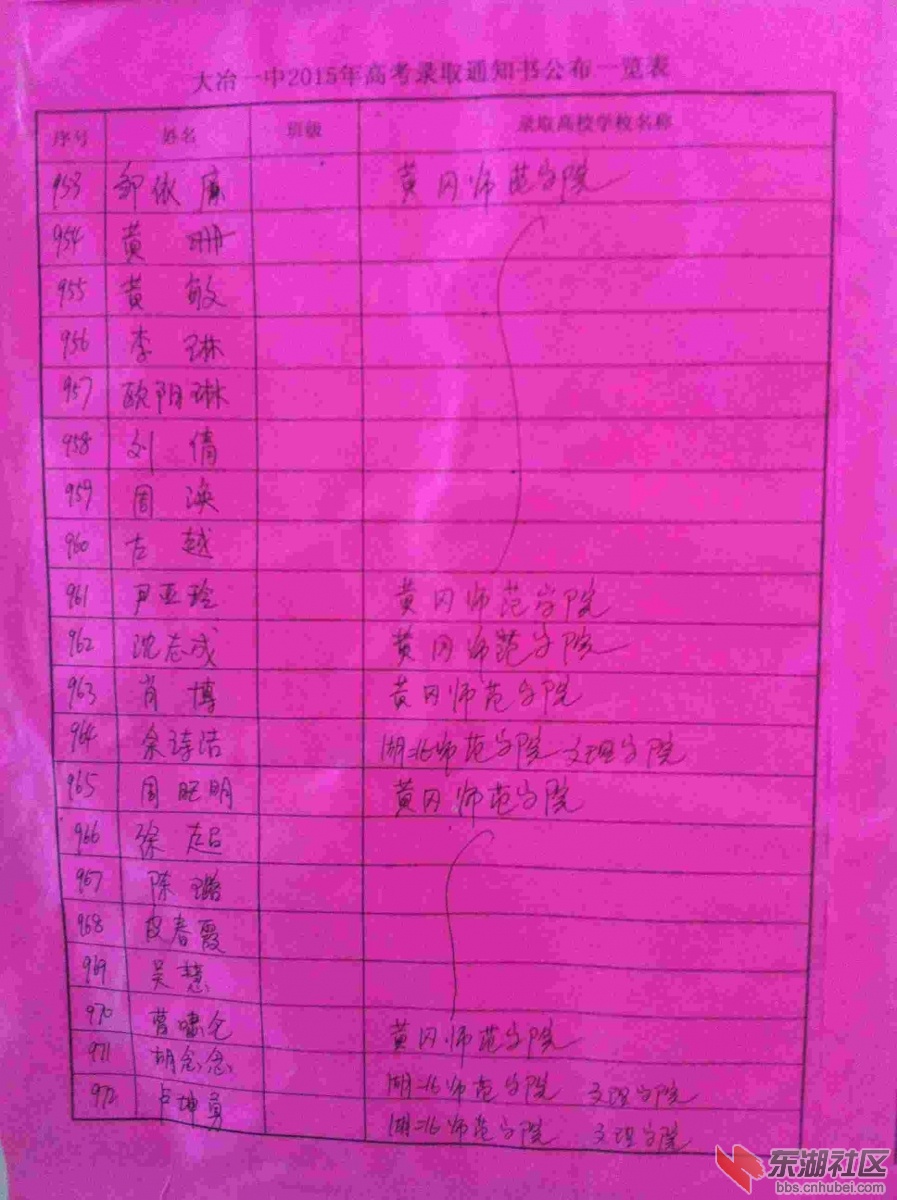 大冶一中2015年高考录取通知书公布一览表
序号 姓名 班级 录取高校学校名称
953 邹依廉 黄冈师范学院
954 黄珊
955 黄敏
956 李琳
957 欧阳琳
958 刘倩
959 周涣
960 古越
961 尹亚玲 黄冈师范学院
962 沈志成 黄冈师范学院
963 肖博 黄冈师范学院
964 余诗洁 湖北师范学院 文理学院
965 周昭明 黄冈师范学院
966 徐超
967 陈璐
968 皮春霞
969 吴慧
970 曹啸仑 黄冈师范学院
971 胡念念 湖北师范学院 文理学院
972 卢坤勇 湖北师范学院 文理学院
东湖社区
bbs.cnhubei.com